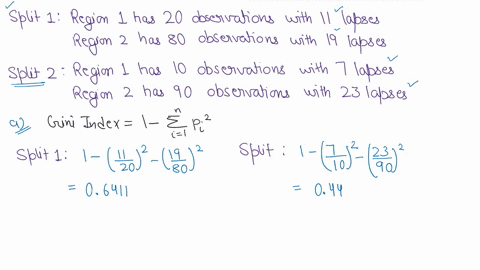 Split 1: Region 1 has 20 observations with 11 lapses
Region 2 has 80 observations with 19 lapses
Split 2: Region 1 has 10 observations with 7 lapses
Region 2 has 90 observations with 23 lapses
a) Gini Index = 1 - \sum_{i=1}^{n} p_i^2
Split 1: 1 - (11/20)^2 - (19/80)^2
= 0.6411
Split : 1 - (7/10)^2 - (23/90)^2
= 0.44